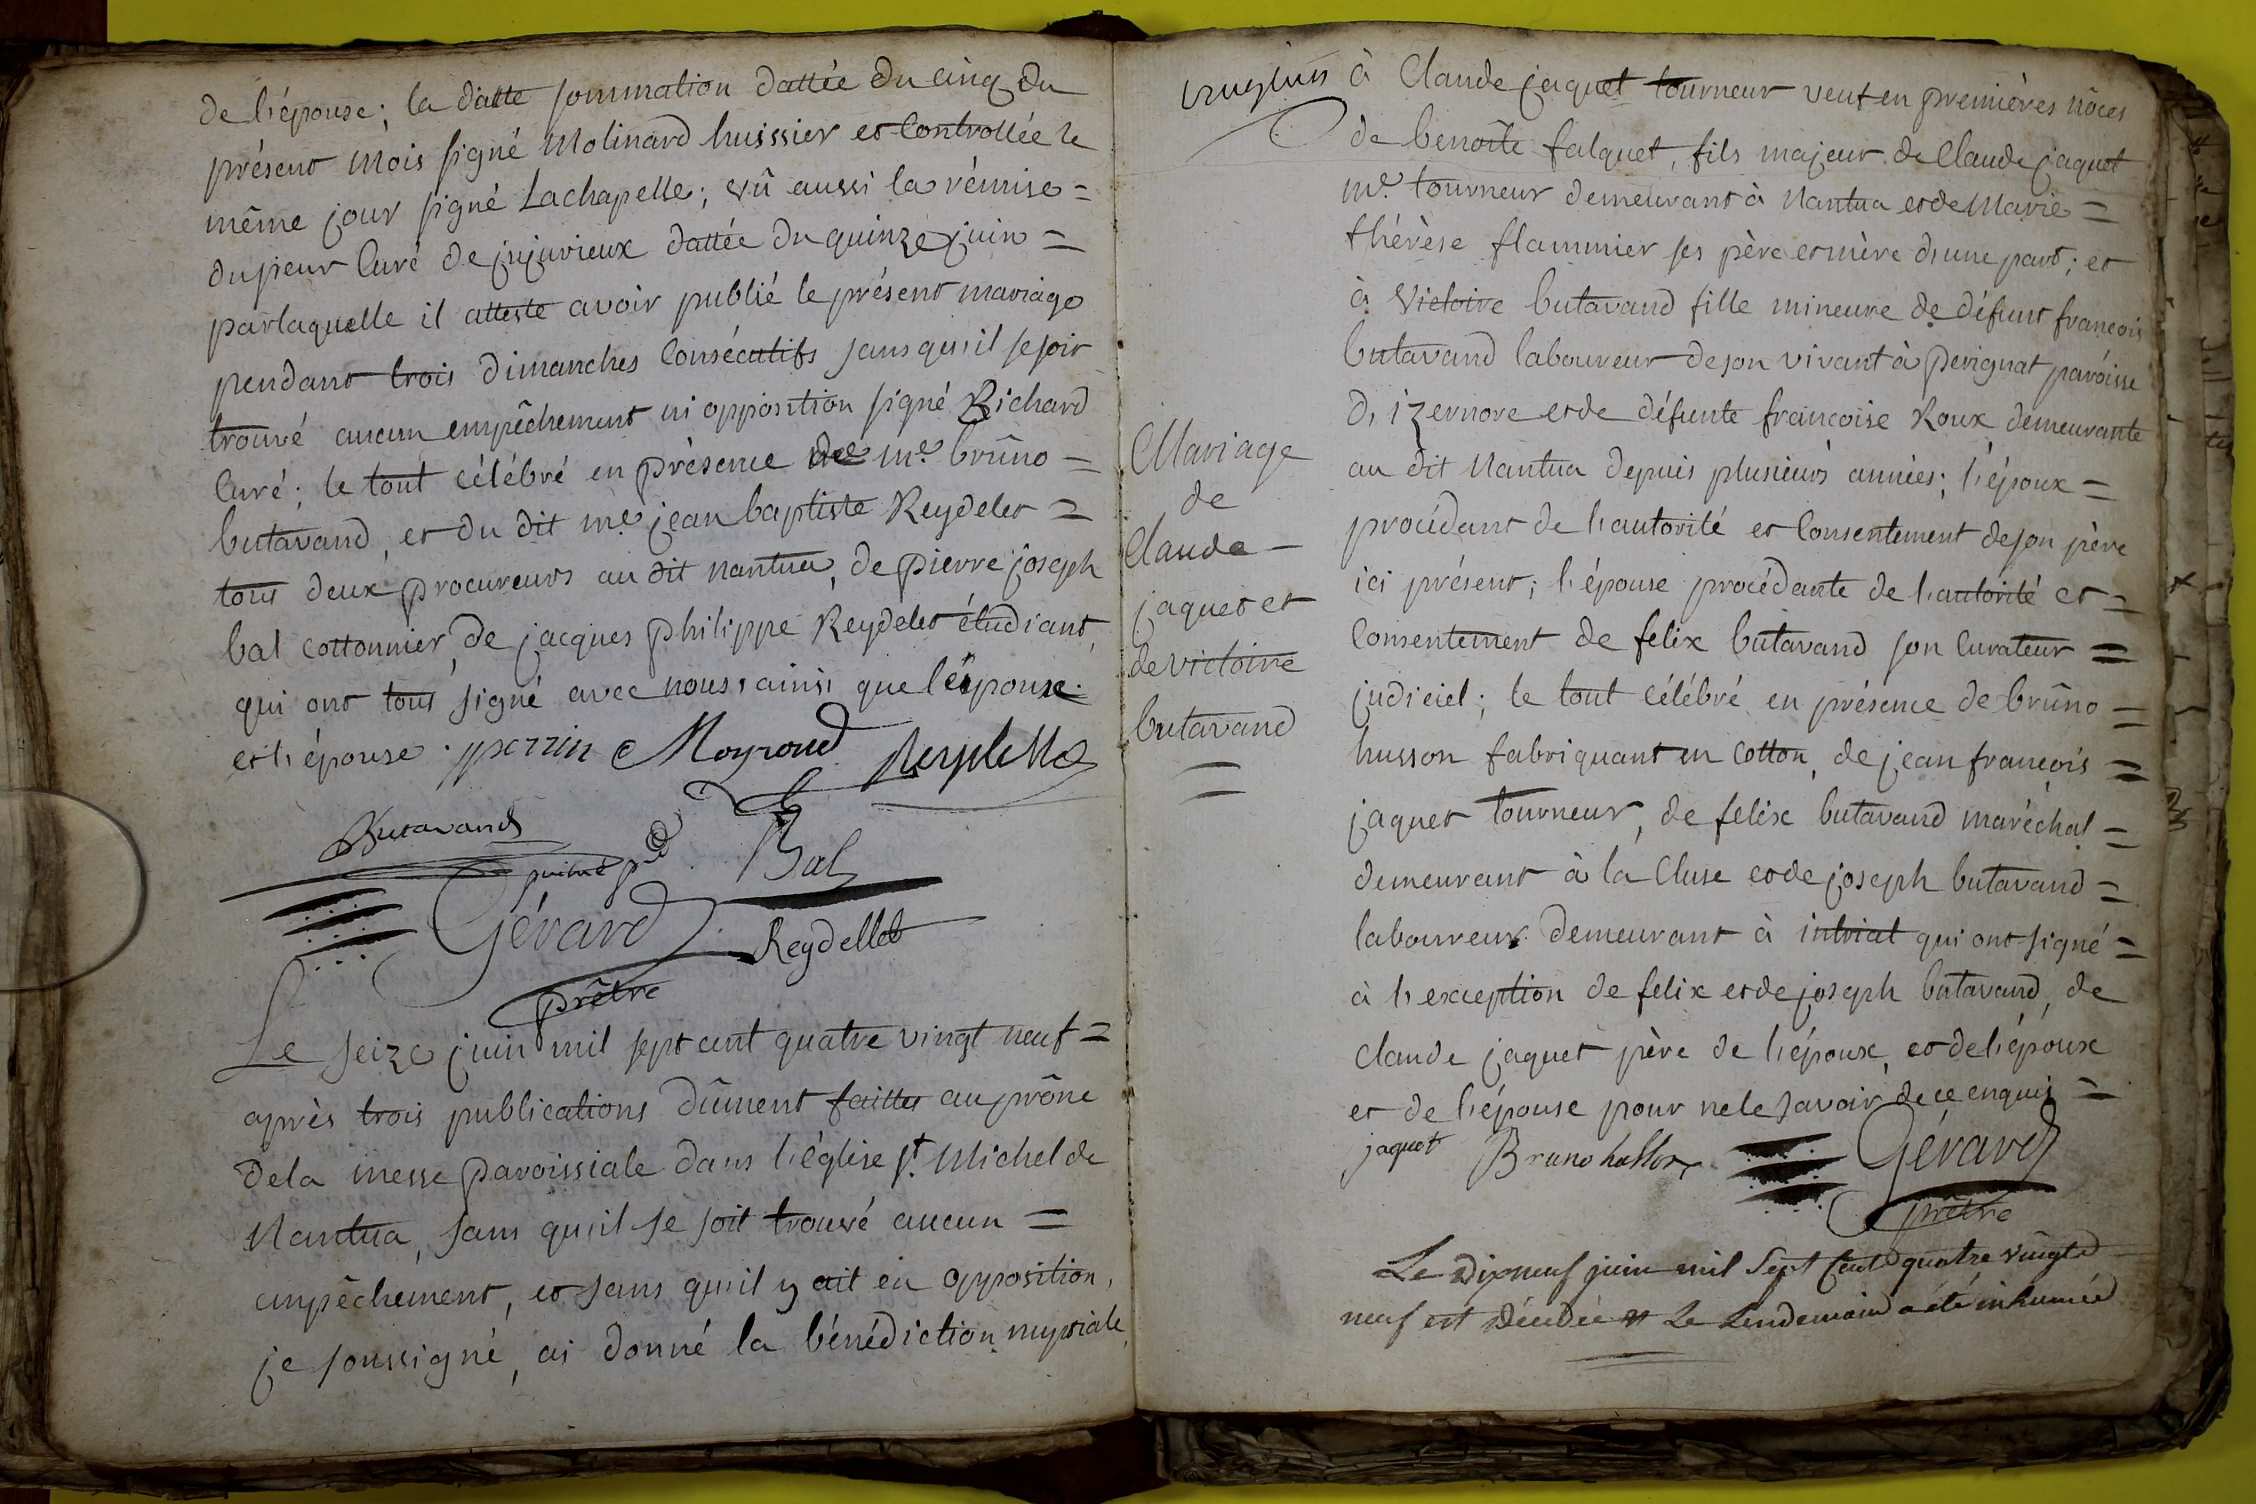 de l'épouse; la ditte sommation dattée du cinq du
présent mois signé Molinard huissier et Controllée le
même jour signé Lachapelle; vû aussi la rémise =
du sieur Curé de jujurieux dattée du quinze juin =
par laquelle il atteste avoir publié le présent mariage
pendant trois dimanches Consécutifs sans qu'il se soit
trouvé aucun empêchement ni opposition signé Richard
Curé; le tout célébré en présence de me. brûno =
butavand, et du dit me. jean baptiste Reydelet =
tous deux procureurs au dit nantua, de pierre joseph
bal cottonnier, de jacques philippe Reydelet étudiant,
qui ont tous signé avec nous, ainsi que l'époux
et l'épouse. perrin Moyroud Reydellet
Butavand
Bal
Gérard
Reydellet
prêtre
Le seize juin mil sept cent quatre vingt neuf =
après trois publications dûment faittes au prône
de la messe paroissiale dans l'église St. Michel de
Nantua, sans qu'il se soit trouvé aucun =
empêchement, et sans qu'il y ait eu opposition,
je soussigné, ai donné la bénédiction nuptiale
à Claude jaquet tourneur veuf en premières nôces
de benoîte falquet, fils majeur de Claude jaquet
me. tourneur demeurant à Nantua et de Marie =
thérèse flammier ses père et mère d'une part; et
à Victoire butavand fille mineure de défunt francois
butavand laboureur de son vivant à perignat paroisse
d'izernore et de défunte francoise Roux demeurante
au dit Nantua depuis plusieurs années; l'époux =
procédant de l'autorité et Consentement de son père
ici présent; l'épouse procédante de l'autorité et =
Consentement de felix butavand son Curateur =
judiciel; le tout célébré en présence de brûno =
husson fabriquant en cotton, de jean francois =
jaquet tourneur, de felix butavand maréchal =
demeurant à la Cluse et de joseph butavand =
laboureur demeurant à intriat qui ont signé =
à l'exception de felix et de joseph butavand, de
Claude jaquet père de l'époux, et de l'époux
et de l'épouse pour ne le savoir de ce enquis =
jaquet Bruno husson Gérard
prêtre
Mariage
de
Claude -
jaquet et
de victoire
butavand
Le Dixneuf juin mil Sept Cent quatre vingt
neuf est Décédée et Le Lendemain a été inhumée